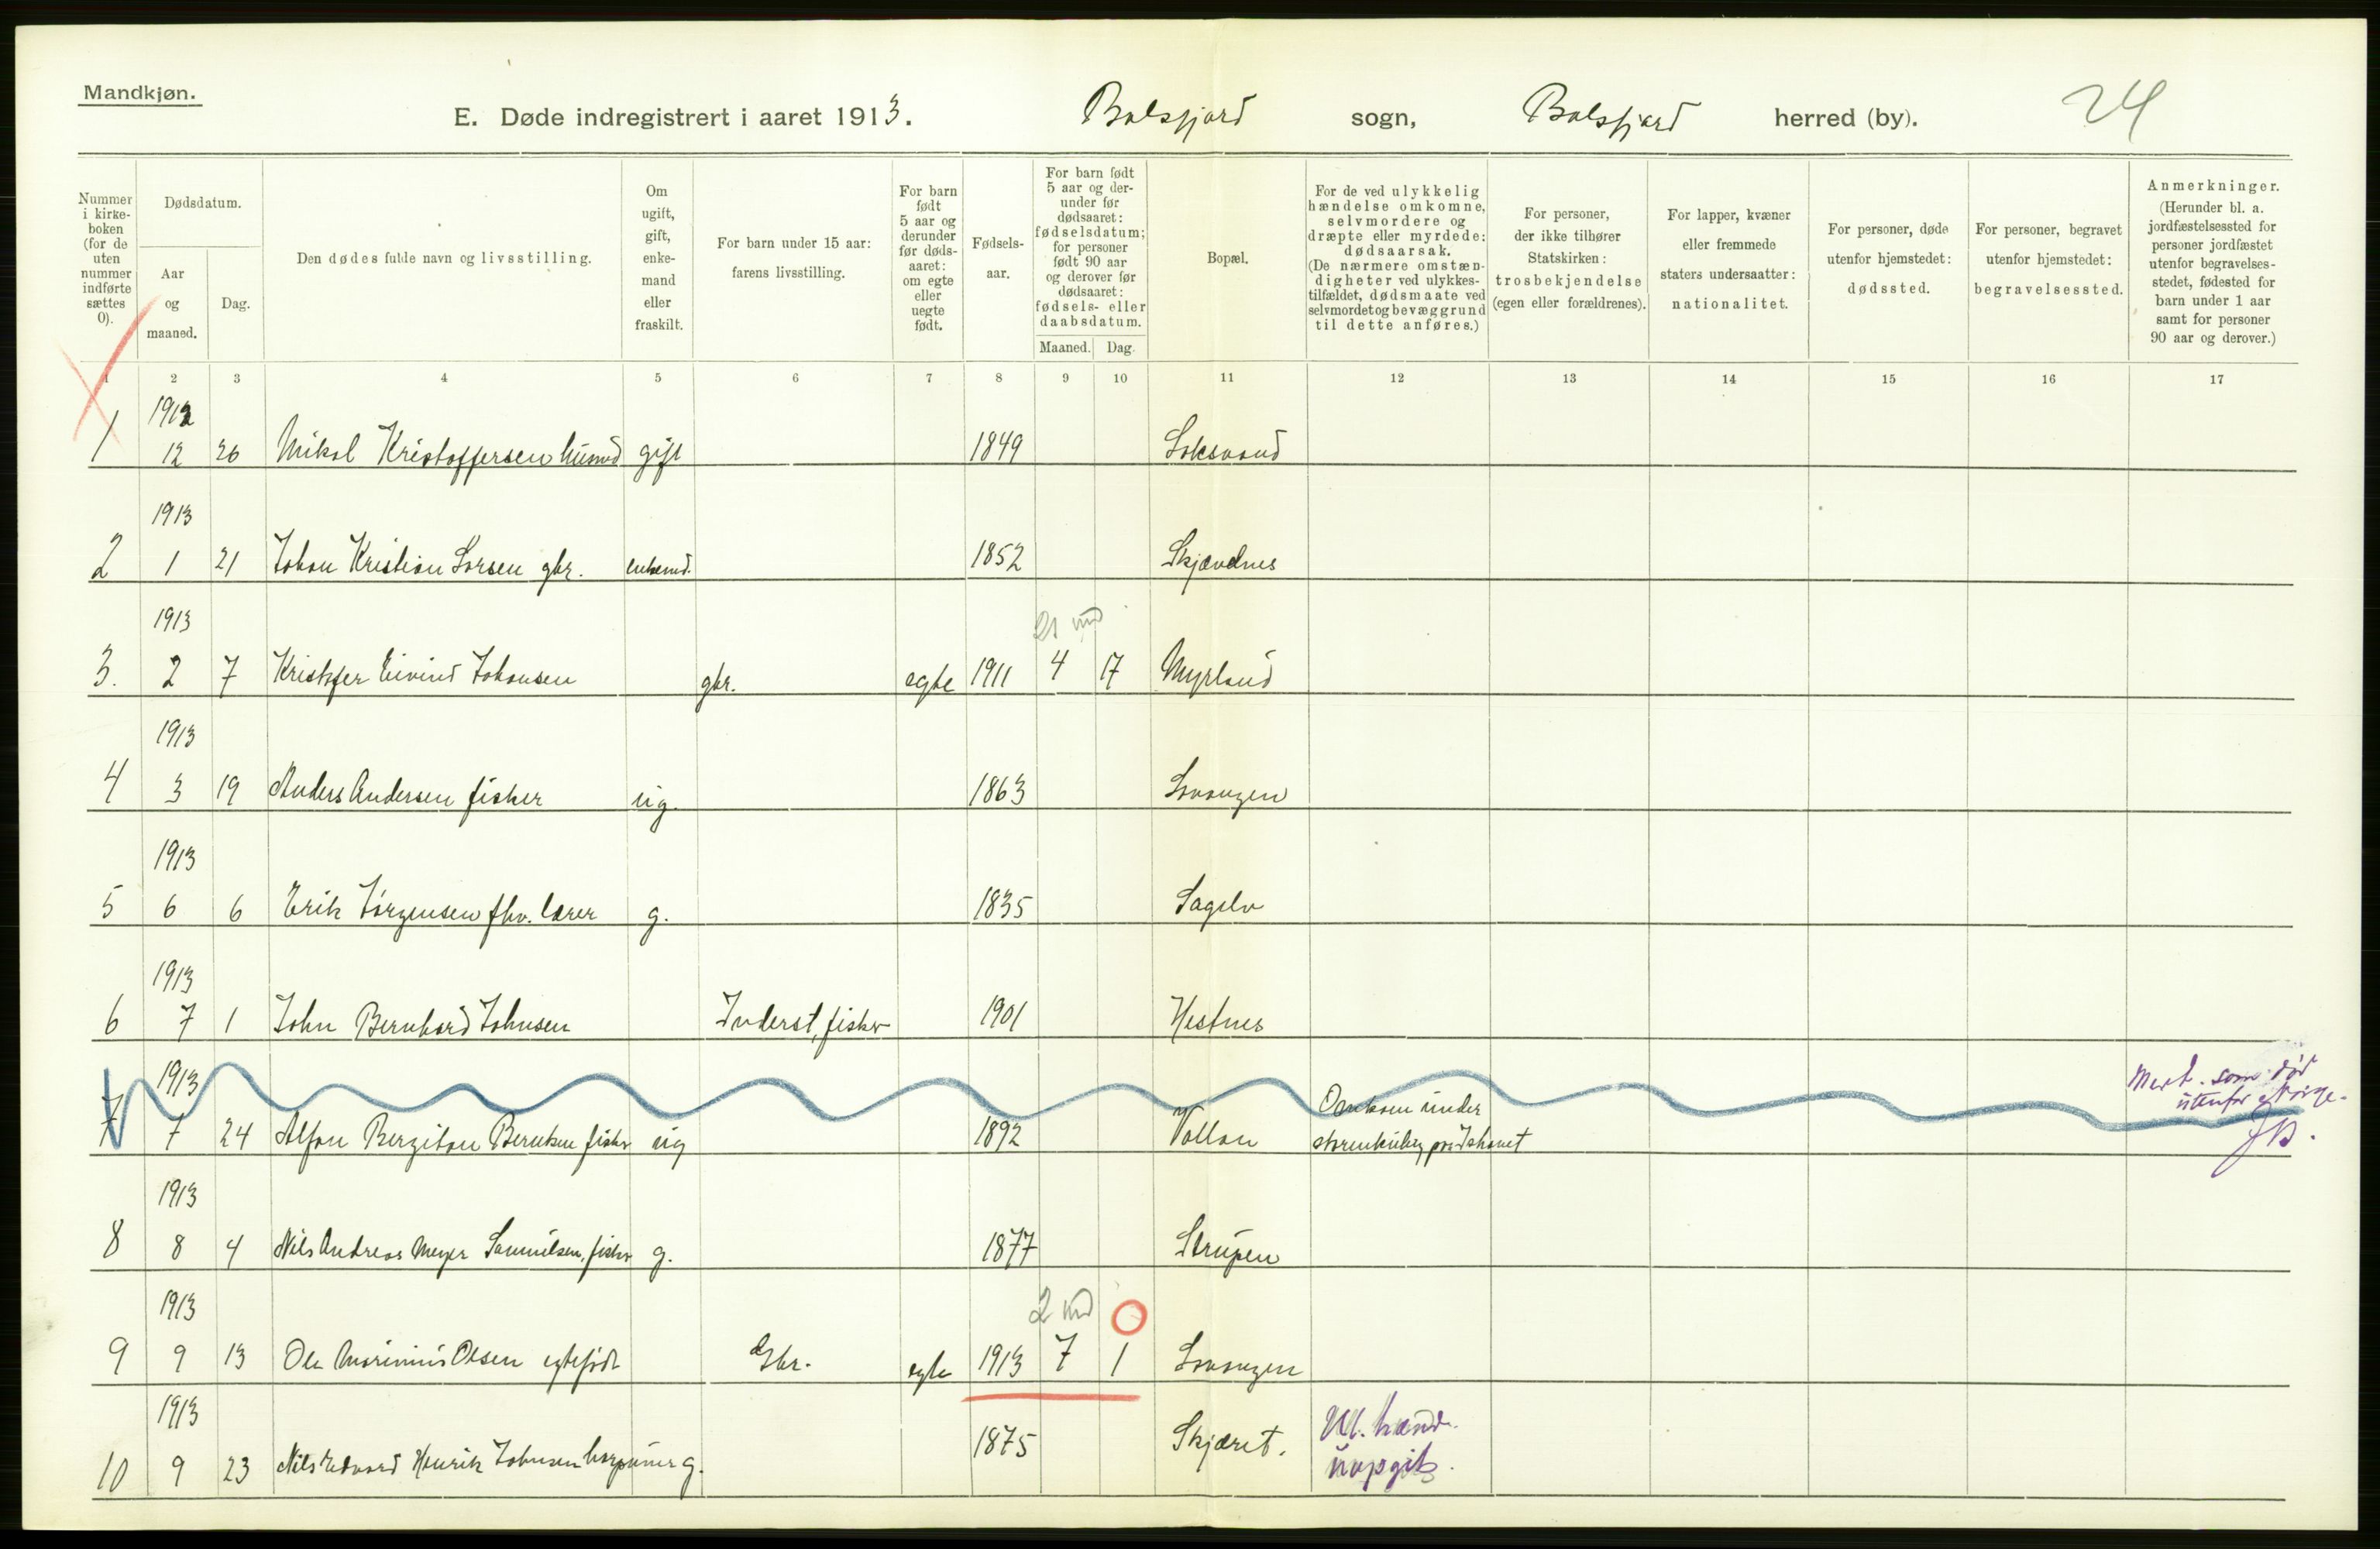 Mandkjøn.
E. Døde indregistrert i aaret 1913. Balsfjord sogn, Balsfjord herred (by). 24
Nummer i kirke-boken (for de uten nummer indførte sættes 0).
Dødsdatum.
Aar og maaned.
Dag.
Den dødes fulde navn og livsstilling.
Om ugift, gift, enke-mand eller fraskilt.
For barn under 15 aar: farens livsstilling.
For barn født 5 aar og derunder før døds-aaret: om egte eller uegte født.
Fødsels-aar.
For barn født 5 aar og der-under før dødsaaret: fødselsdatum; for personer født 90 aar og derover før dødsaaret: fødsels- eller daabsdatum.
Maaned. Dag.
Bopæl.
For de ved ulykkelig hændelse omkomne, selvmordere og dræpte eller myrdede: dødsaarsak. (De nærmere omstæn-digheter ved ulykkes-tilfældet, dødsmaate ved selvmordet og bevæggrund til dette anføres.)
For personer, der ikke tilhører Statskirken: trosbekjendelse (egen eller forældrenes).
For lapper, kvæner eller fremmede staters undersaatter: nationalitet.
For personer, døde utenfor hjemstedet: dødssted.
For personer, begravet utenfor hjemstedet: begravelsessted.
Anmerkninger. (Herunder bl. a. jordfæstelsessted for personer jordfæstet utenfor begravelses-stedet, fødested for barn under 1 aar samt for personer 90 aar og derover.)
1 2 3 4 5 6 7 8 9 10 11 12 13 14 15 16 17
1912
1 12 26 Mikal Kristoffersen husmd gift 1849 Laksvand
1913
2 1 21 Johan Kristian Larsen gbr. enkemd. 1852 Skjævelnes
1913 21 md
3. 2 7 Kristofer Eivind Johansen gbr. egte 1911 4 17 Myrland
1913
4 3 19 Anders Andersen fisker ug. 1863 Lavangen
1913
5 6 6 Erik Jørgensen fhv. lærer g. 1835 Sagelv
1913
6 7 1 John Bernhard Johnsen Inderst, fisker 1901 Hestnes
1913 Omkom under Merk. som død utenfor Norge.
7 7 24 Alfon Bergiton Berntsen fisker ug 1892 Vollan JB.
1913
8 8 4 Nils Andreas Meyer Samuelsen, fisker g. 1877 Strupen
1913 2 md
9 9 13 Ole Marinius Olsen egtefødt Gbr. egte 1913 7 1 Lavangen
1913 Ul. hænd.
10 9 23 Nils Edvard Henrik Johnsen harpuner g. 1875 Skjæret. uopgit.